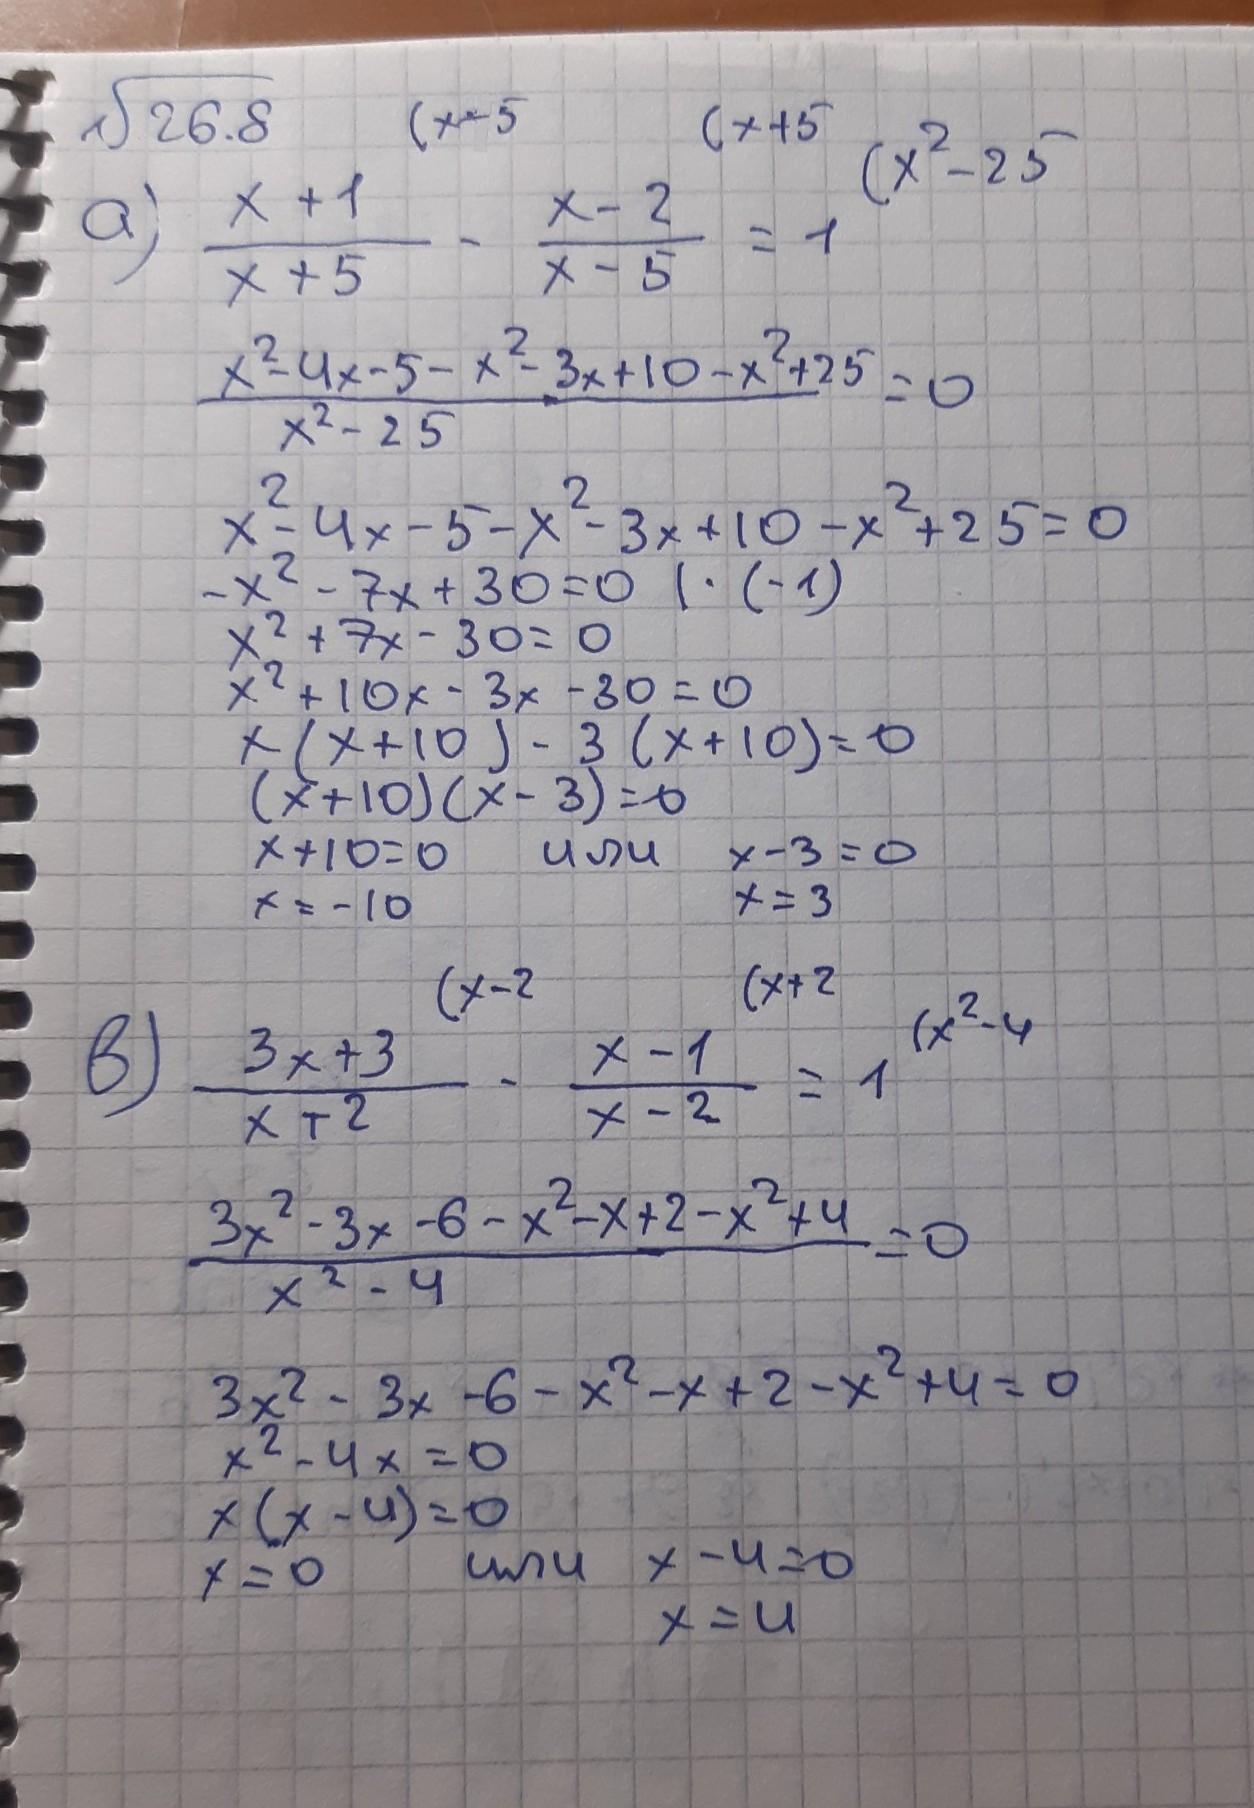 √26.8 (x-5 (x+5 (x²-25
а) (x+1)/(x+5) - (x-2)/(x-5) = 1
(x²-4x-5-x²-3x+10-x²+25)/(x²-25) = 0
x²-4x-5-x²-3x+10-x²+25=0
-x²-7x+30=0 |·(-1)
x²+7x-30=0
x²+10x-3x-30=0
x(x+10)-3(x+10)=0
(x+10)(x-3)=0
x+10=0 или x-3=0
x=-10 x=3
(x-2 (x+2 (x²-4
в) (3x+3)/(x+2) - (x-1)/(x-2) = 1
(3x²-3x-6-x²-x+2-x²+4)/(x²-4) = 0
3x²-3x-6-x²-x+2-x²+4=0
x²-4x=0
x(x-4)=0
x=0 или x-4=0
x=4